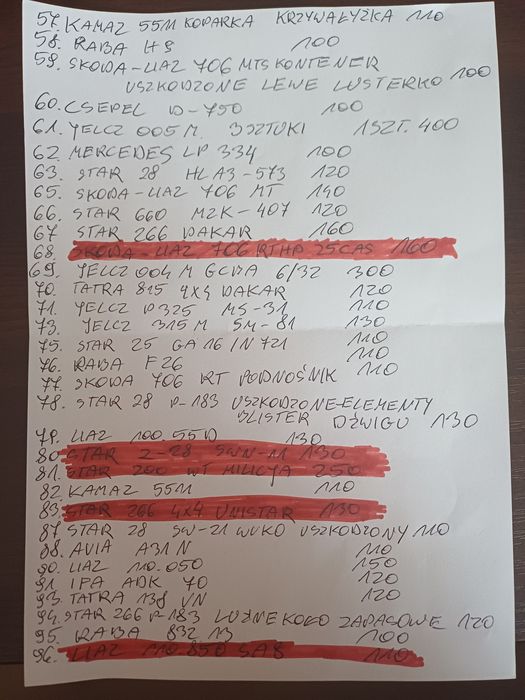 57. KAMAZ 5511 KOPARKA KRZYWAŁYŻKA 110
58. RABA H8 100
59. SKODA-LIAZ 706 MTS KONTENER
USZKODZONE LEWE LUSTERKO 100
60. CSEPEL D-750 100
61. JELCZ 005 M. 3 SZTUKI 1 SZT. 400
62 MERCEDES LP 334 100
63. STAR 28 HLA3-573 120
65. SKODA-LIAZ 706 MT 140
66. STAR 660 MZK-407 120
67 STAR 266 DAKAR 160
68. SKODA-LIAZ 706 RTHP 25CAS 160
69. JELCZ 004 M GCBA 6/32 300
70. TATRA 815 4x4 DAKAR 120
71. JELCZ P325 MS-31 110
73. JELCZ 315 M SM-81 130
75. STAR 25 GA 16/N 721 110
76. RABA F26 110
77. SKODA 706 RT PODNOŚNIK 110
78. STAR 28 P-183 USZKODZONE-ELEMENTY
BLISTER DŹWIGU 130
79. LIAZ 100.55D 130
80. STAR Z-28 SWN-11 130
81. STAR 200 WT MILICYJA 250
82. KAMAZ 5511 110
83. STAR 266 4x4 UNISTAR 130
87. STAR 28 SW-21 WUKO USZKODZONY 110
88. AVIA A31 N 110
90. LIAZ 110.050 150
91. IFA ADK 70 120
93. TATRA 138 VN 120
94. STAR 266 P-183 LUŹNE KOŁO ZAPASOWE 120
95. RABA 832 13 100
96. LIAZ 110 850 SA8 110